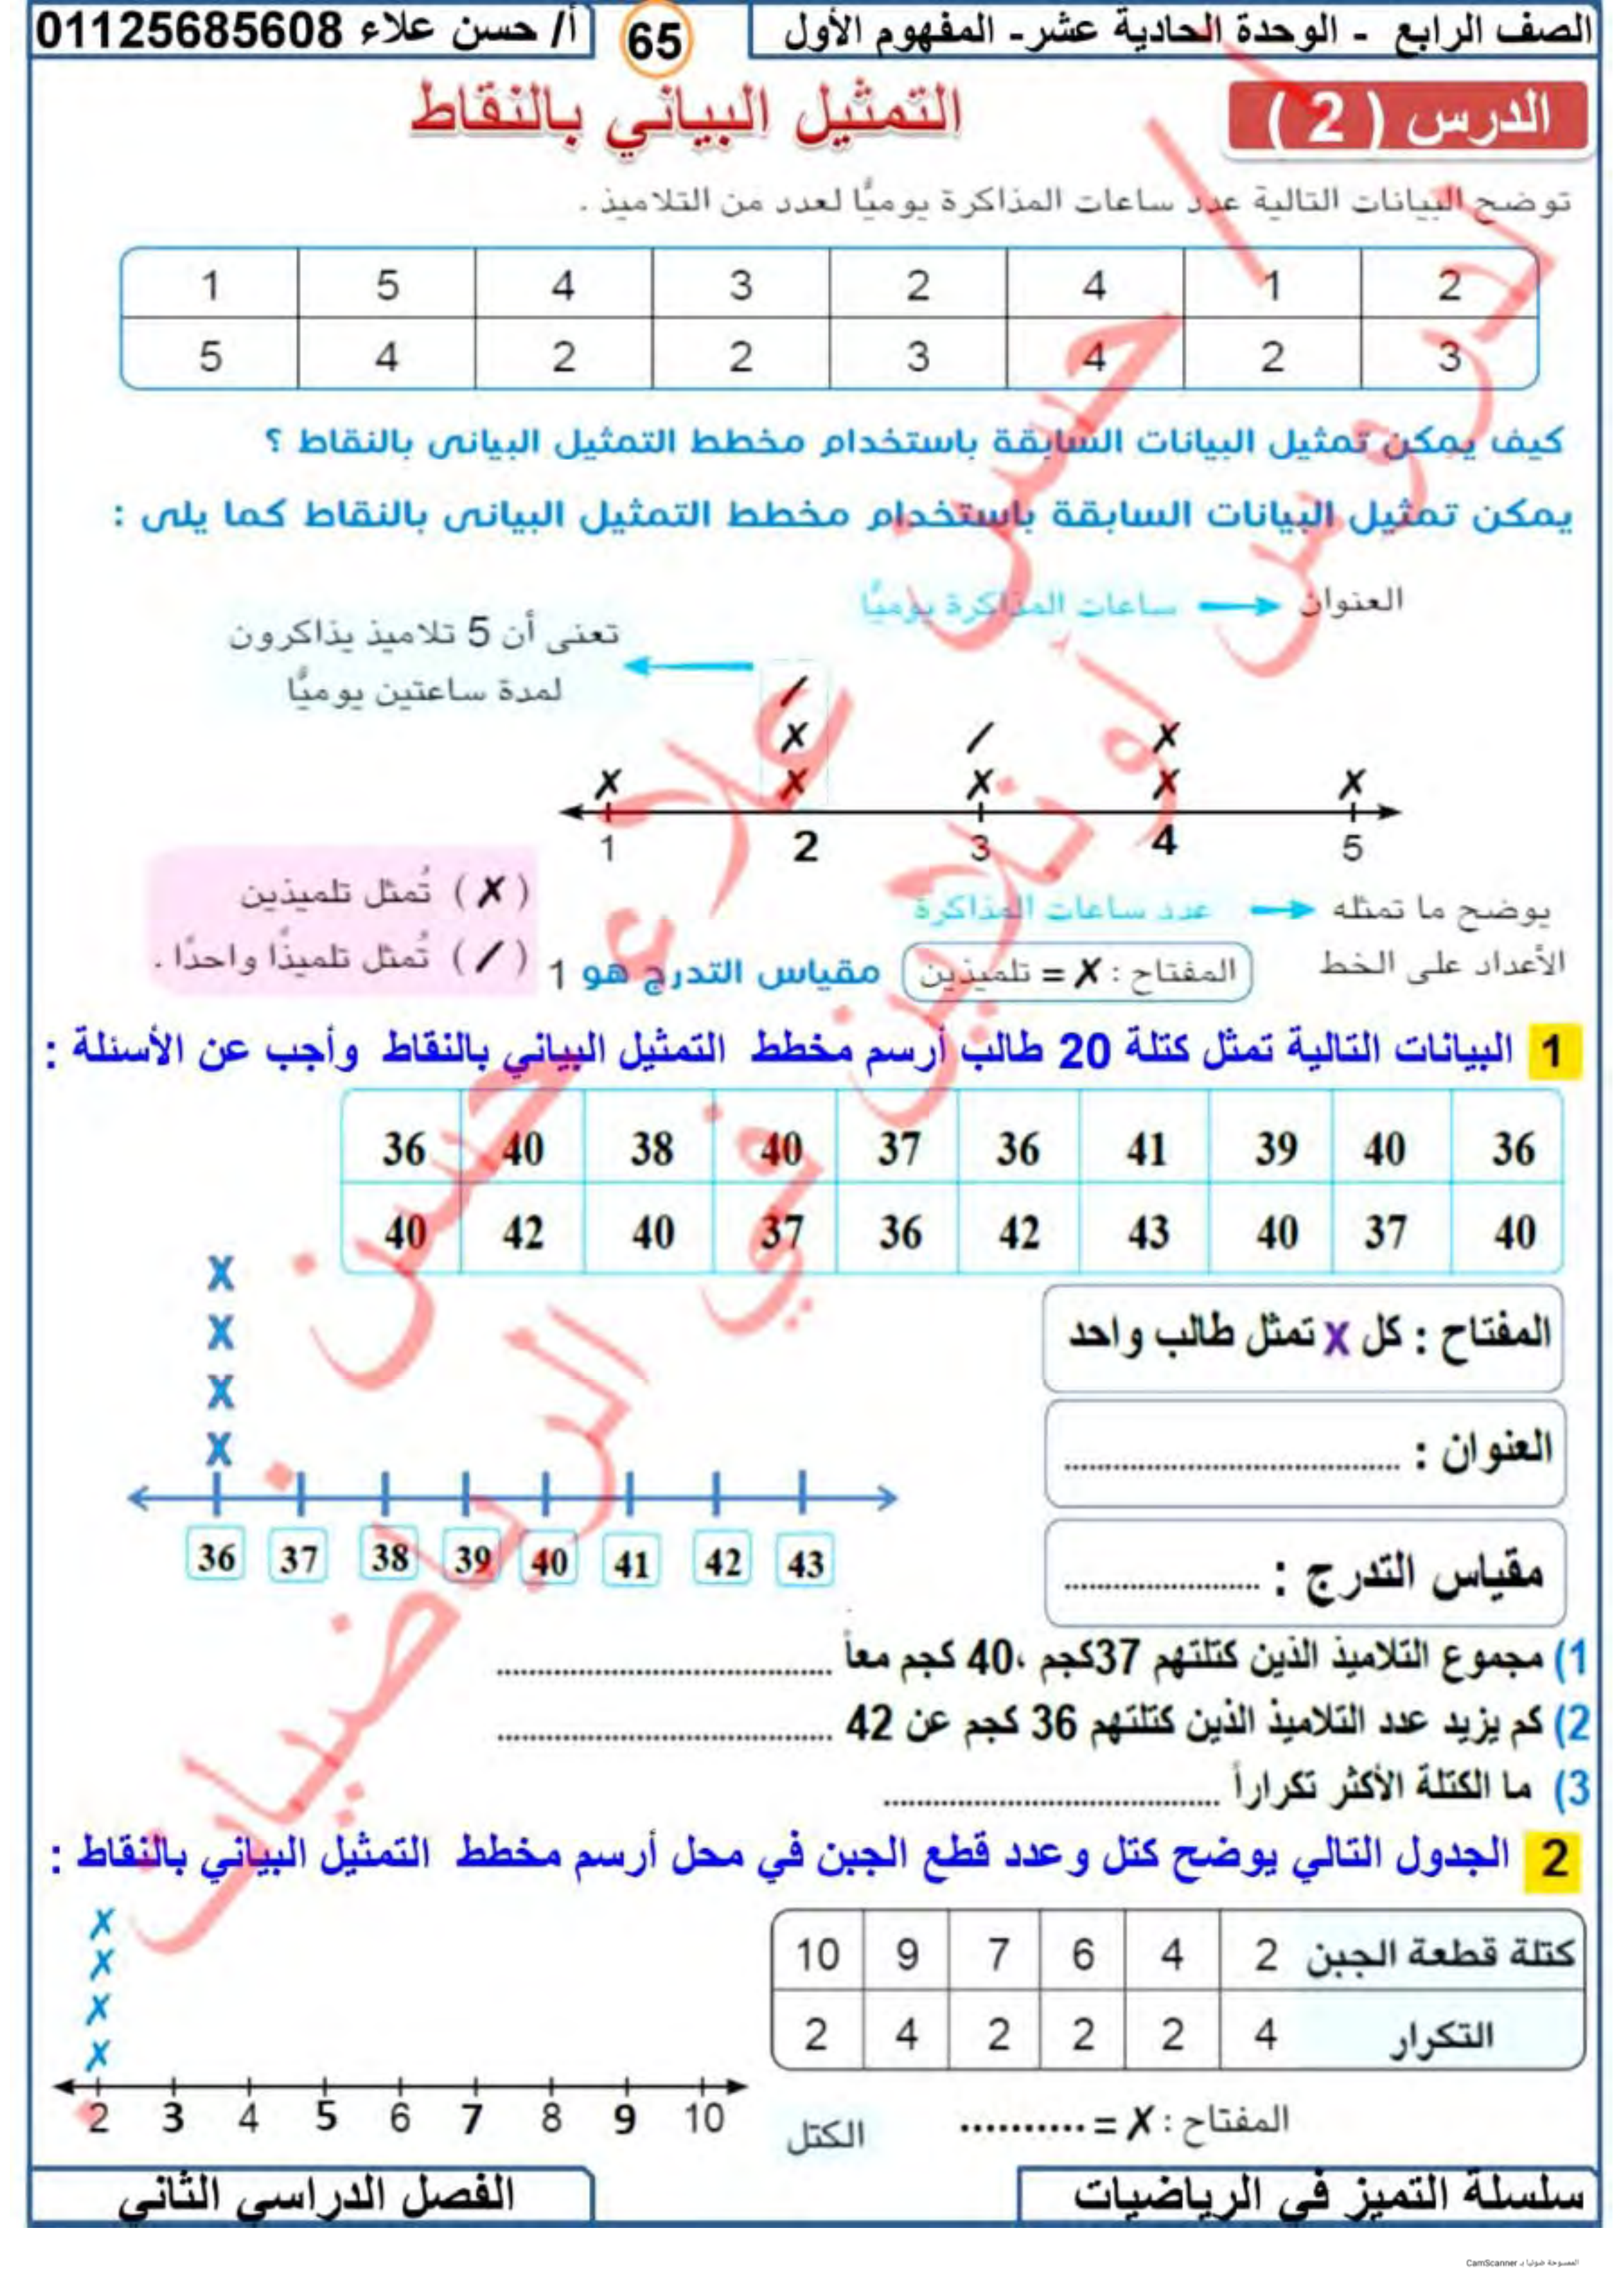 الصف الرابع - الوحدة الحادية عشر- المفهوم الأول
65
أ/ حسن علاء 01125685608
الدرس ( 2 )
التمثيل البياني بالنقاط
توضح البيانات التالية عدد ساعات المذاكرة يوميًّا لعدد من التلاميذ .
1 5 4 3 2 4 1 2
5 4 2 2 3 4 2 3
كيف يمكن تمثيل البيانات السابقة باستخدام مخطط التمثيل البيانى بالنقاط ؟
يمكن تمثيل البيانات السابقة باستخدام مخطط التمثيل البيانى بالنقاط كما يلى :
العنوان
ساعات المذاكرة يوميًّا
تعنى أن 5 تلاميذ يذاكرون
لمدة ساعتين يوميًّا
1 2 3 4 5
يوضح ما تمثله
الأعداد على الخط
عدد ساعات المذاكرة
المفتاح : ✗ = تلميذين
مقياس التدرج هو 1
( ✗ ) تُمثل تلميذين
( / ) تُمثل تلميذًا واحدًا .
1 البيانات التالية تمثل كتلة 20 طالب أرسم مخطط التمثيل البياني بالنقاط وأجب عن الأسئلة :
36 40 38 40 37 36 41 39 40 36
40 42 40 37 36 42 43 40 37 40
X
X
X
X
المفتاح : كل X تمثل طالب واحد
العنوان : ........................................
مقياس التدرج : ........................
36 37 38 39 40 41 42 43
1) مجموع التلاميذ الذين كتلتهم 37كجم ،40 كجم معاً ........................................
2) كم يزيد عدد التلاميذ الذين كتلتهم 36 كجم عن 42 ........................................
3) ما الكتلة الأكثر تكراراً ........................................
2 الجدول التالي يوضح كتل وعدد قطع الجبن في محل أرسم مخطط التمثيل البياني بالنقاط :
كتلة قطعة الجبن 2 4 6 7 9 10
التكرار 4 2 2 2 4 2
✗
✗
✗
✗
2 3 4 5 6 7 8 9 10
الكتل
المفتاح : ✗ = ..........
سلسلة التميز في الرياضيات
الفصل الدراسي الثاني
أ / حسن علاء حسن
لدروس أونلاين في الرياضيات
الممسوحة ضوئيا بـ CamScanner